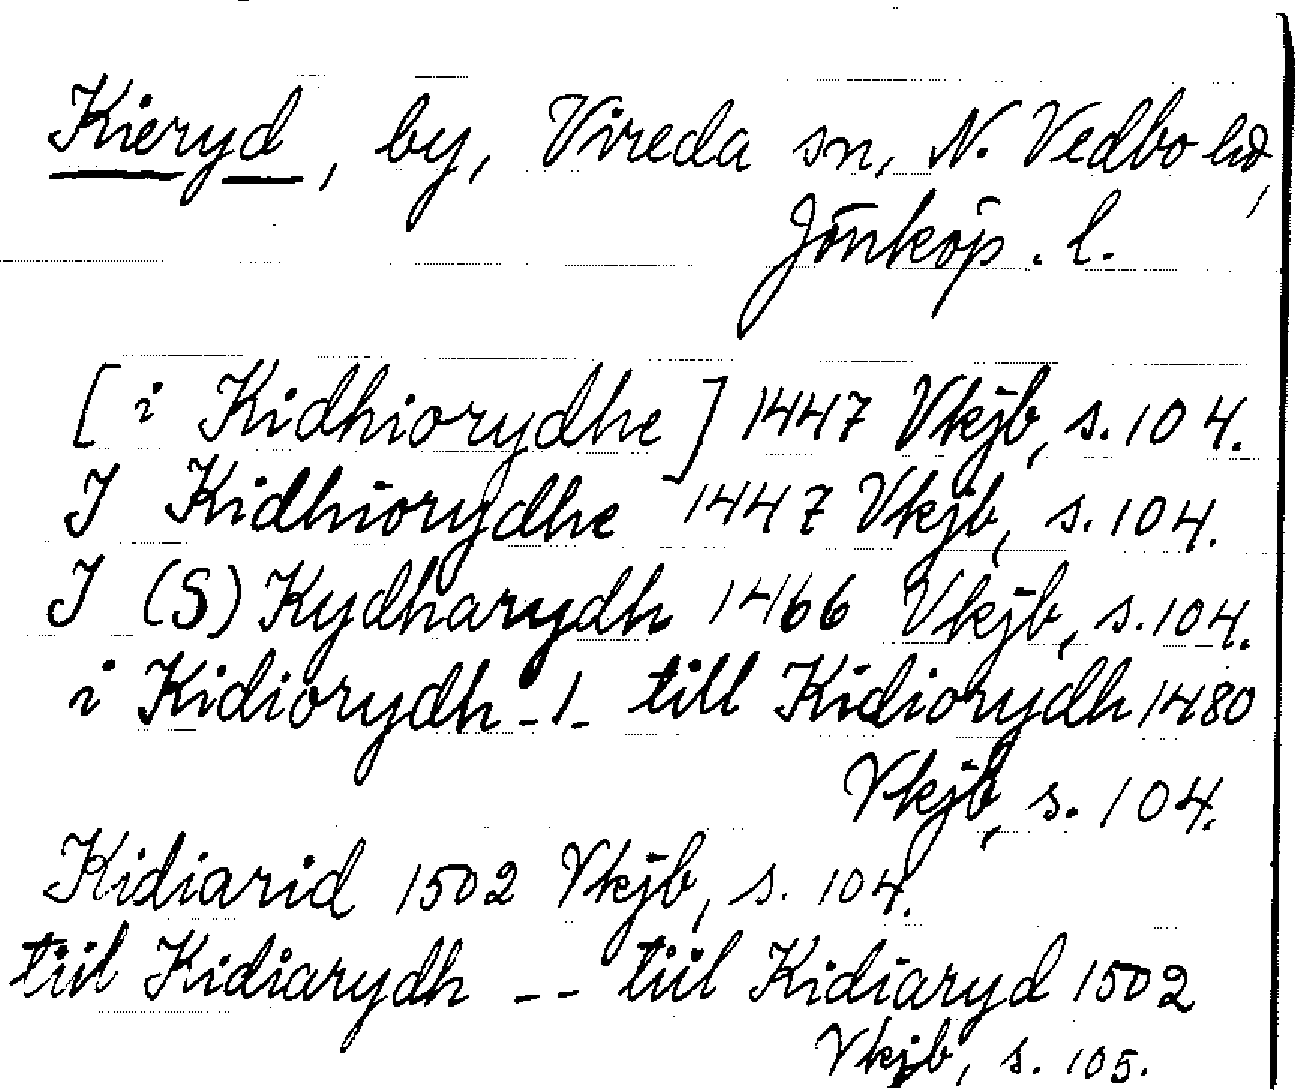 Kieryd, by, Vireda sn, N. Vedbo hd,
Jönköp. l.
[i Kidhiorydhe] 1447 Vkjb, s. 104.
I Kidhiorydhe 1447 Vkjb, s. 104.
I (S) Kydharydh 1466 Vkjb, s. 104.
i Kidiorydh -/- till Kidiorydh 1480
Vkjb, s. 104.
Kidiarid 1502 Vkjb, s. 104.
tiil Kidiarydh -- tiil Kidiaryd 1502
Vkjb, s. 105.